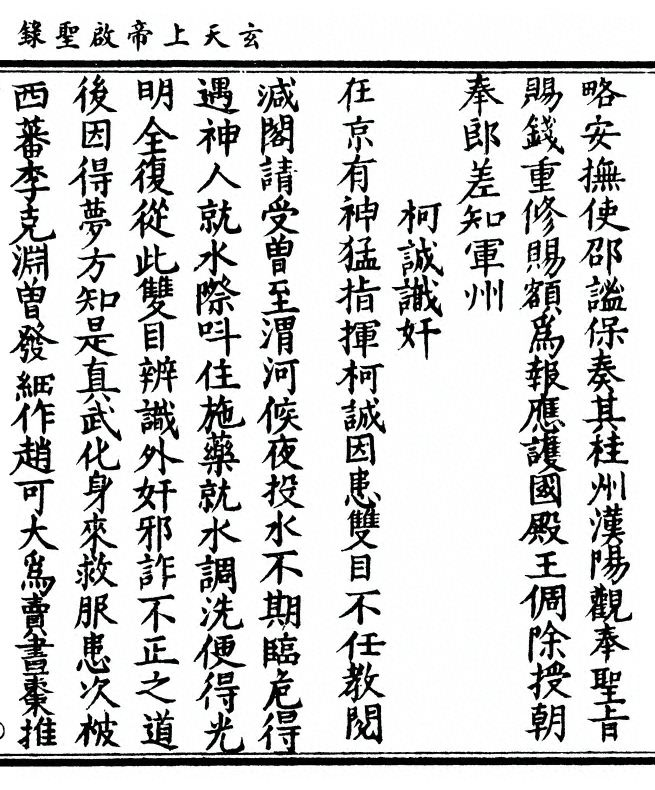 玄天上帝啟聖錄
略安撫使邵謐保奏其桂州漢陽觀奉聖旨
賜錢重修賜額為報應護國殿王倜除授朝
奉郎差知軍州
柯誠識奸
在京有神猛指揮柯誠因患雙目不任教閱
減閣請受曽至渭河候夜投水不期臨危得
遇神人就水際呌住施藥就水調洗便得光
明全復從此雙目辨識外奸邪詐不正之道
後因得夢方知是真武化身來救眼患次被
西蕃李克淵曽發細作趙可大為賣書棗推